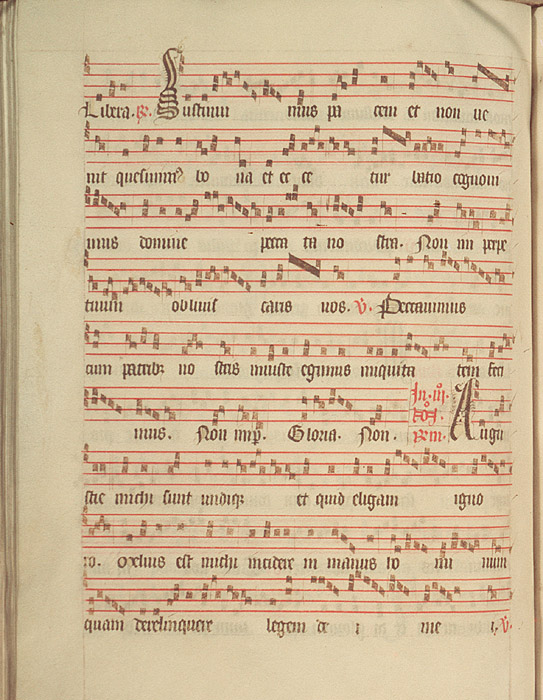 Libera. ℟. Sustinui mus pa cem et non ve
nit quesiuim⁹ bo na et ec ce tur batio cognoui
mus domine pecca ta no stra. Non in perpe
tuum obliuis caris nos. ℣. Peccauimus
cum patribꝫ no stris iniuste egimus iniquita tem feci
mus. Non inp̄. Gloria. Non. In .iii. Noct. Rm̄. Angu
stie michi sunt undiqꝫ et quid eligam igno
ro. melius est michi incidere in manus ho mi num
quam derelinquere legem de i me i. ℣.